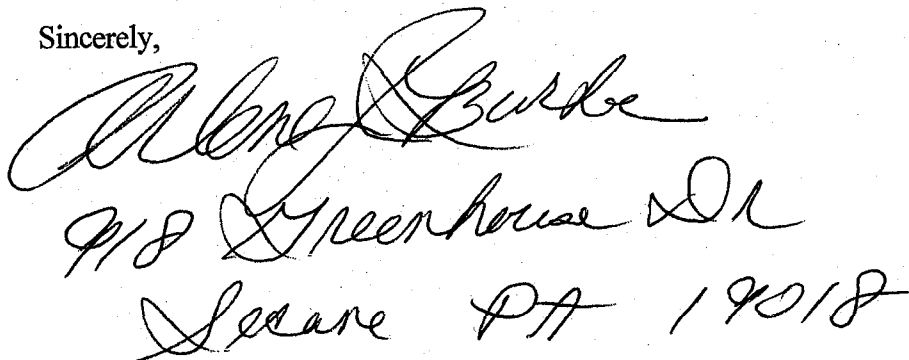 Sincerely,
Arlene Burke
918 Greenhouse Dr
Secane PA 19018